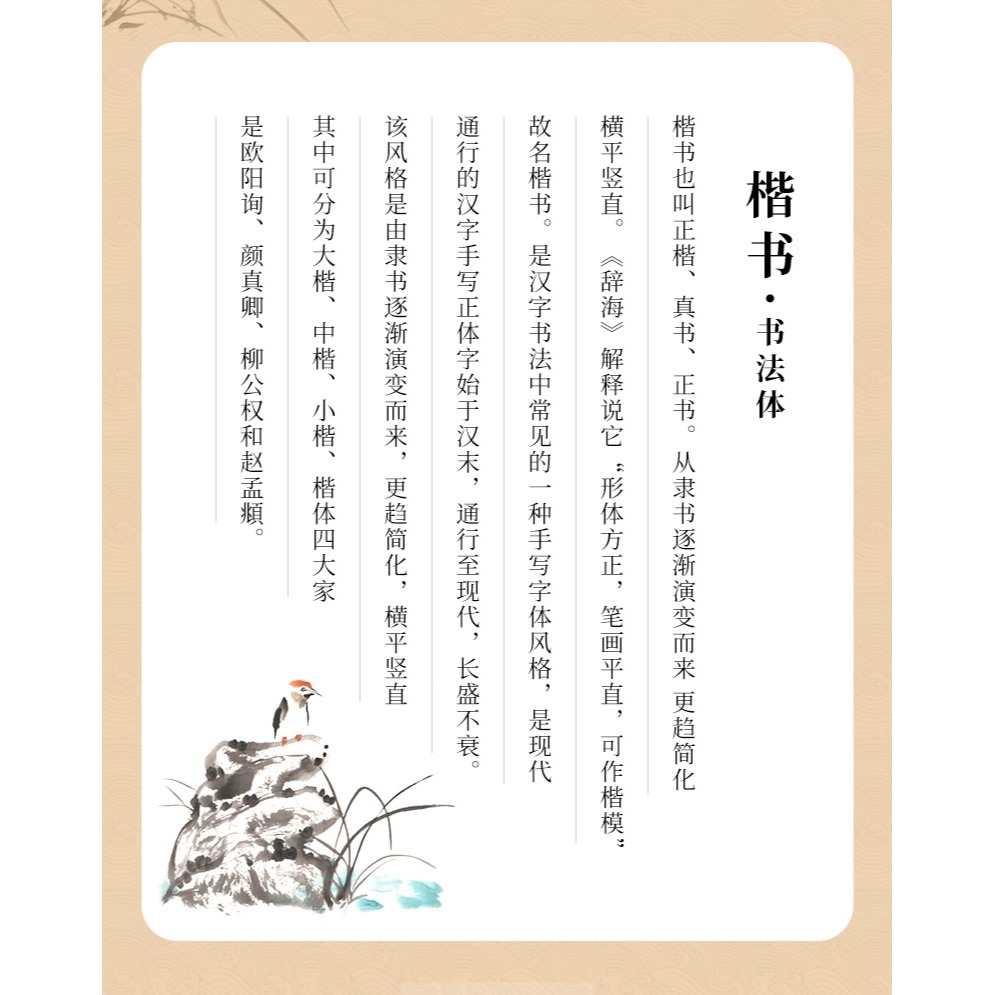 楷书·书法体
楷书也叫正楷、真书、正书。从隶书逐渐演变而来 更趋简化
横平竖直。《辞海》解释说它“形体方正，笔画平直，可作楷模”
故名楷书。是汉字书法中常见的一种手写字体风格，是现代
通行的汉字手写正体字始于汉末，通行至现代，长盛不衰。
该风格是由隶书逐渐演变而来，更趋简化，横平竖直
其中可分为大楷、中楷、小楷、楷体四大家
是欧阳询、颜真卿、柳公权和赵孟頫。